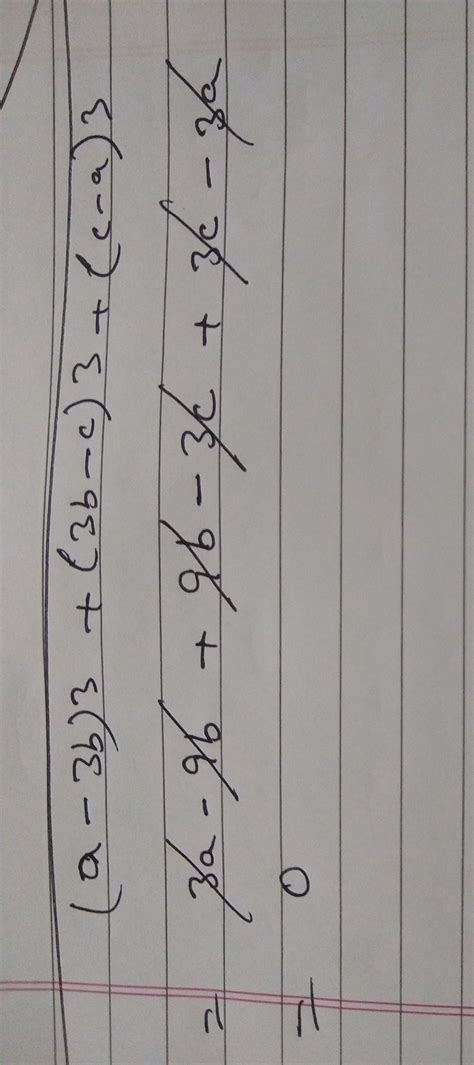 (a - 3b)3 + (3b - c)3 + (c - a)3
= 3a - 9b + 9b - 3c + 3c - 3a
= 0